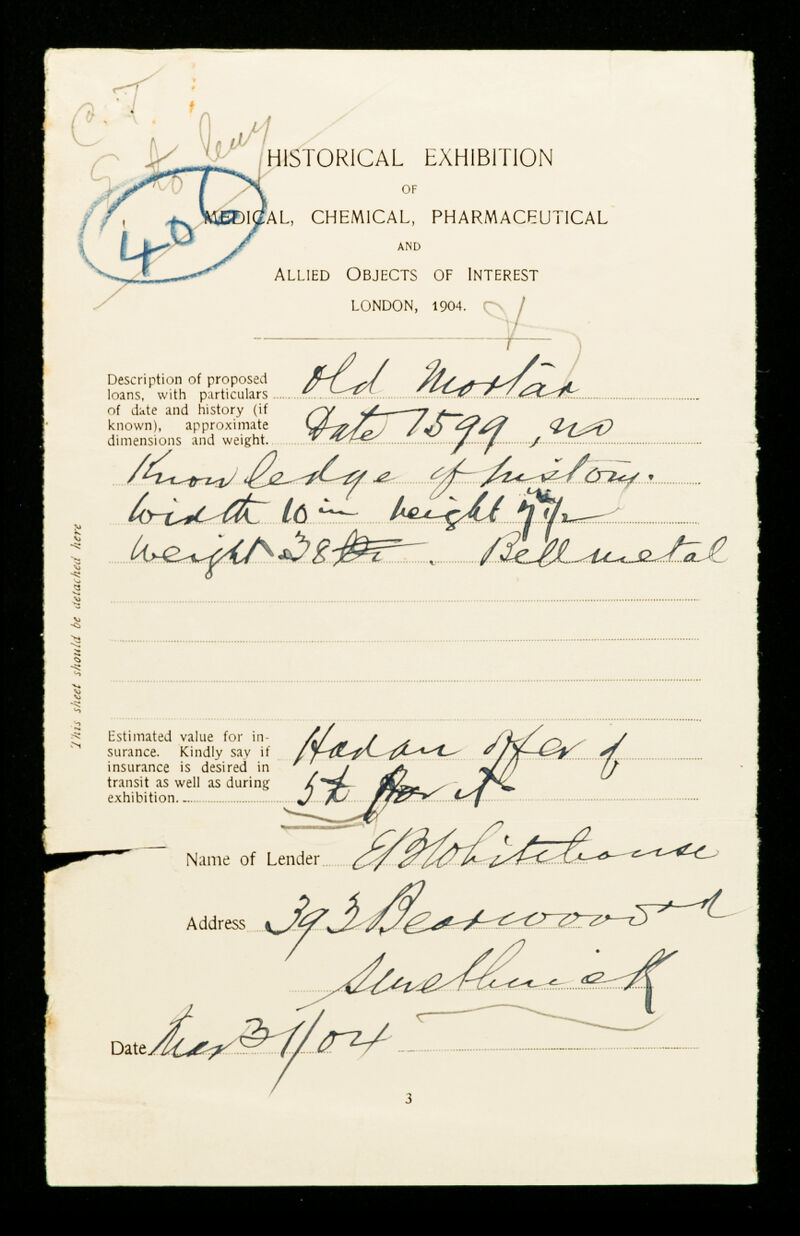 C. T.
406
HISTORICAL EXHIBITION
OF
MEDICAL, CHEMICAL, PHARMACEUTICAL
AND
ALLIED OBJECTS OF INTEREST
LONDON, 1904.
Description of proposed
loans, with particulars
of date and history (if
known), approximate
dimensions and weight.
Old Mortar
Date 1599, no
Knowledge of history.
Width 10 in height 7 1/2
Weight 38 . Bell metal
This sheet should be detached here
Estimated value for in-
surance. Kindly say if
insurance is desired in
transit as well as during
exhibition.
Had an offer of
5£ for it
Name of Lender E B Whitehouse
Address 393 Bearwood rd
Smethwick
Date Mar 31/04
3